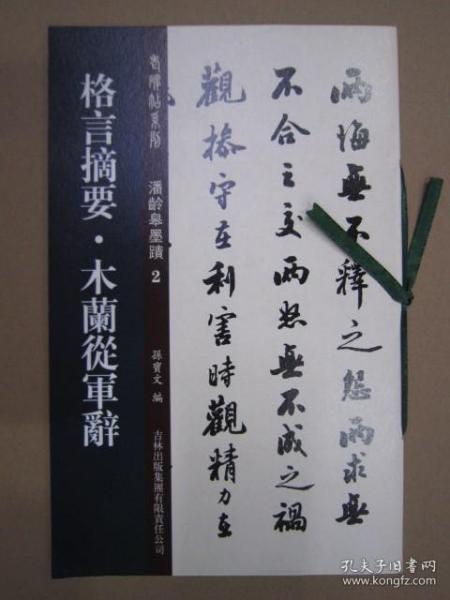 兩悔無不釋之怨兩求無
不合之交兩怒無不成之禍
觀操守在利害時觀精力在
老碑帖系列
潘齡皋墨蹟 2
孫寶文 編
吉林出版集團有限責任公司
格言摘要・木蘭從軍辭
孔夫子旧书网
www.kongfz.com